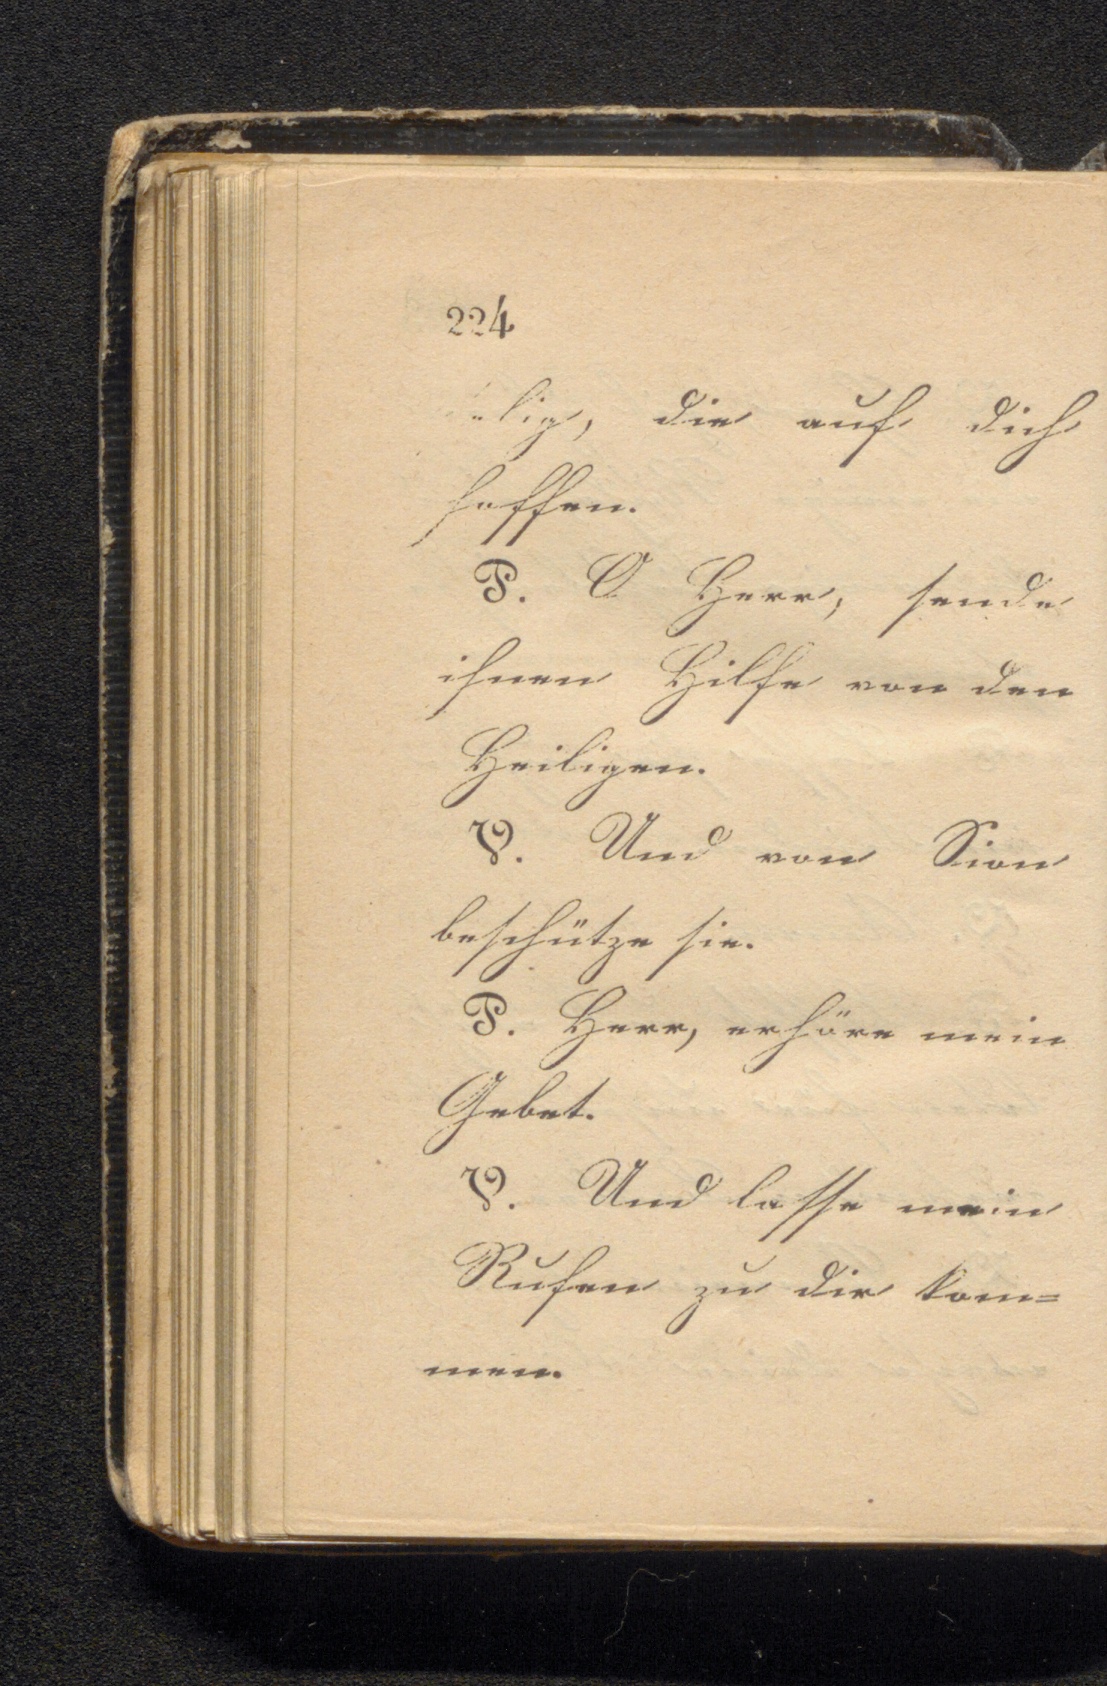 224
elig, die auf dich
hoffen.
P. O Herr, sende
ihnen Hilfe von den
Heiligen.
V. Und von Sion
beschütze sie.
P. Herr, erhöre mein
Gebet.
V. Und lasse mein
Rufen zu dir kom=
men.